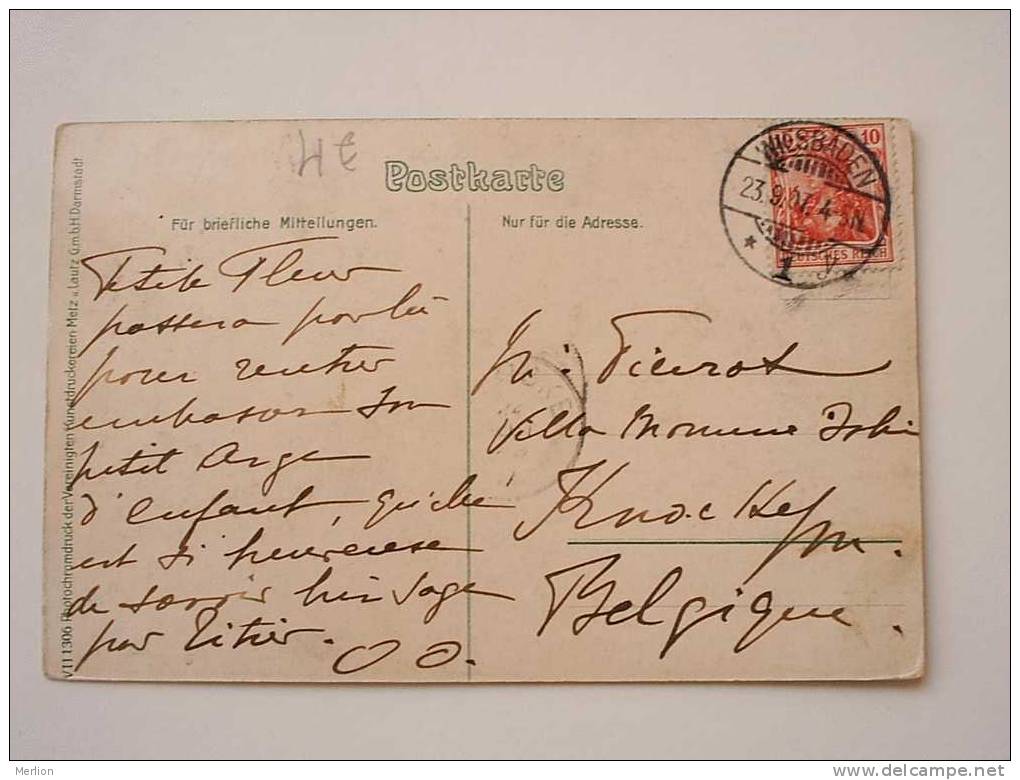 4€
Postkarte
Für briefliche Mitteilungen.
Nur für die Adresse.
WIESBADEN
23.9.07. 4-5N.
* 1 y
10
DEUTSCHES REICH
Petite Fleur
passera par là
pour rentrer
embrasser son
petit Ange
d'enfant, qui
est si heureuse
de savoir bien sage
par
Villa
Knocke s/m.
Belgique.
VII 1306 Photochromdruck der Vereinigten Kunstdruckereien Metz u. Lautz G.m.b.H. Darmstadt
Merlion
www.delcampe.net